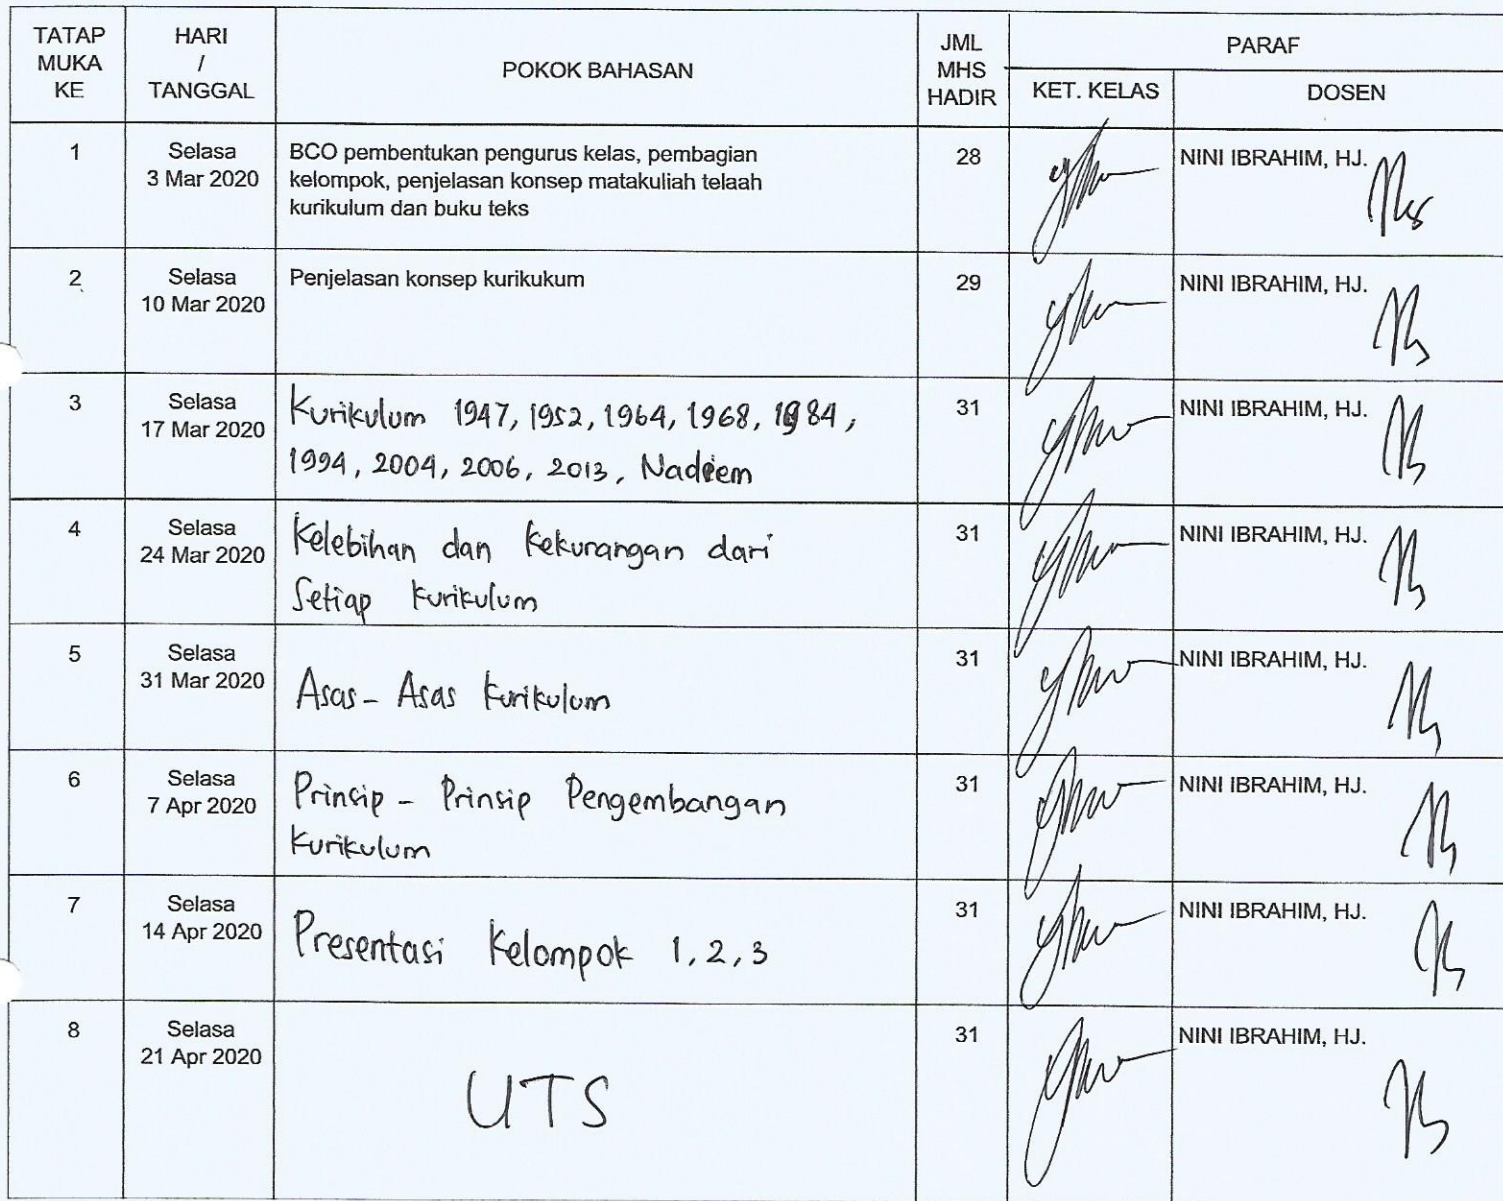 TATAP MUKA KE
HARI / TANGGAL
POKOK BAHASAN
JML MHS HADIR
PARAF
KET. KELAS
DOSEN
1
Selasa
3 Mar 2020
BCO pembentukan pengurus kelas, pembagian
kelompok, penjelasan konsep matakuliah telaah
kurikulum dan buku teks
28
NINI IBRAHIM, HJ.
2
Selasa
10 Mar 2020
Penjelasan konsep kurikukum
29
NINI IBRAHIM, HJ.
3
Selasa
17 Mar 2020
Kurikulum 1947, 1952, 1964, 1968, 1984,
1994, 2004, 2006, 2013, Nadiem
31
NINI IBRAHIM, HJ.
4
Selasa
24 Mar 2020
Kelebihan dan kekurangan dari
Setiap kurikulum
31
NINI IBRAHIM, HJ.
5
Selasa
31 Mar 2020
Asas - Asas kurikulum
31
NINI IBRAHIM, HJ.
6
Selasa
7 Apr 2020
Prinsip - Prinsip Pengembangan
Kurikulum
31
NINI IBRAHIM, HJ.
7
Selasa
14 Apr 2020
Presentasi Kelompok 1, 2, 3
31
NINI IBRAHIM, HJ.
8
Selasa
21 Apr 2020
UTS
31
NINI IBRAHIM, HJ.